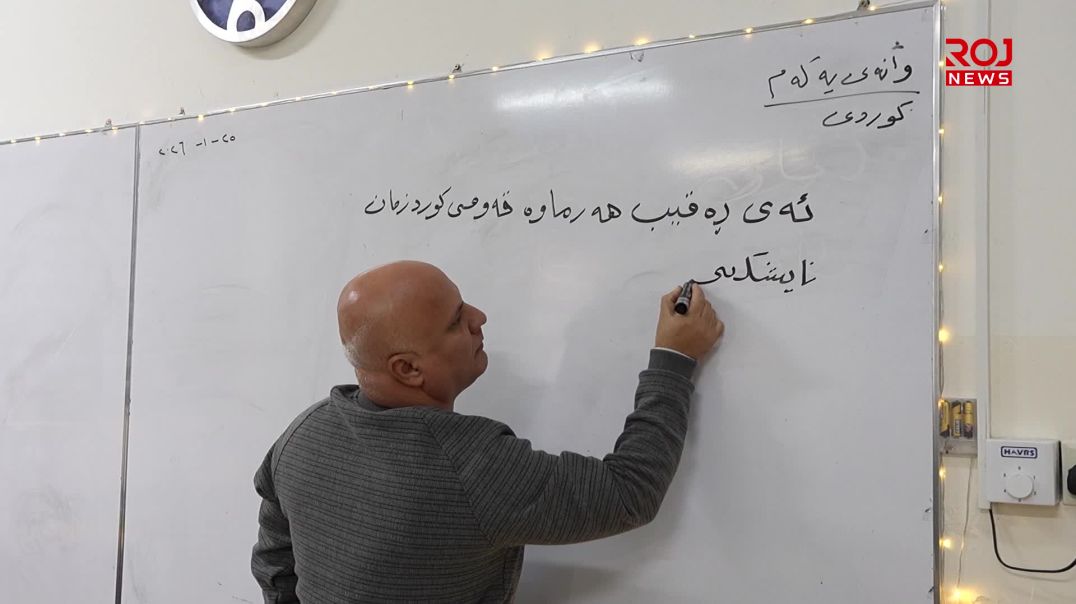 ROJ
NEWS
وانەی یەکەم
کوردی
٢٠٢٦ -١-٢٠
ئەی ڕەقیب هەر ماوە قەومی کورد زمان
نایشکێ
HAVBS